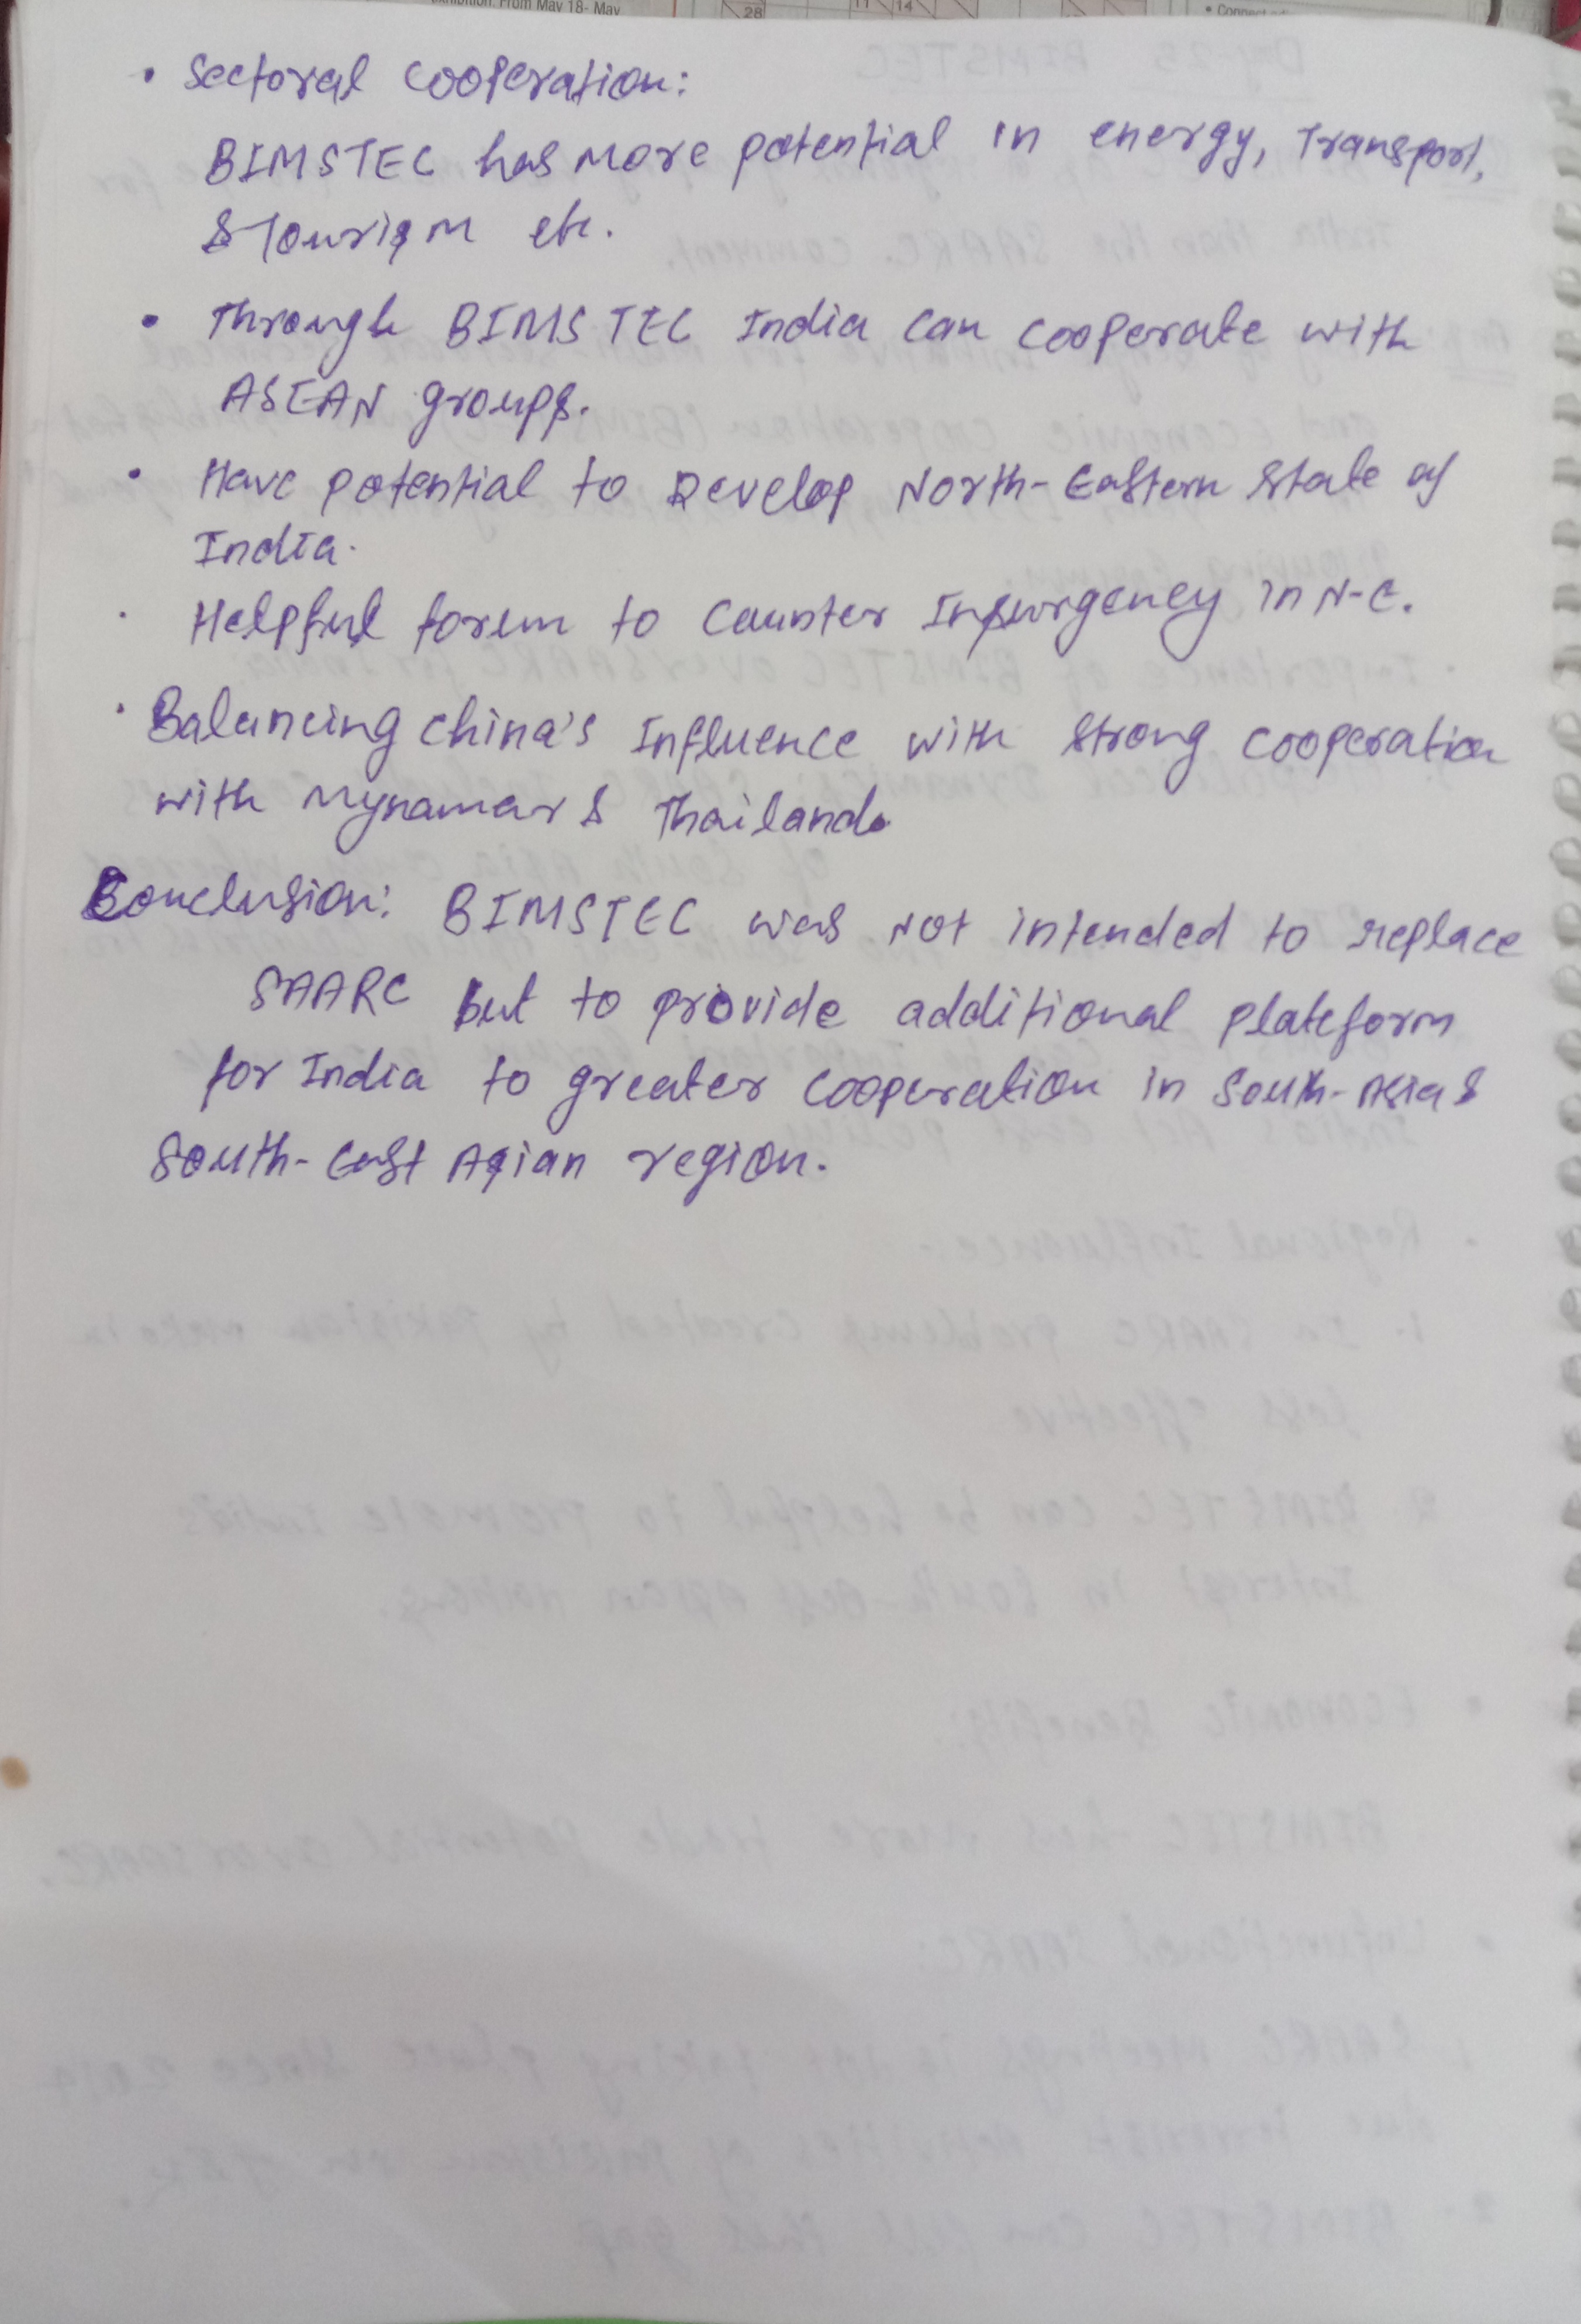 exhibition. From May 18- May
28
11
14
• Sectoral Cooperation:
BIMSTEC has more potential in energy, Transport,
& Tourism etc.
• Through BIMSTEC India can cooperate with
ASEAN groups.
• Have potential to Develop North-Eastern State of
India.
• Helpful forum to Counter Insurgency in N-E.
• Balancing China's Influence with Strong cooperation
with Mynamar & Thailand.
Conclusion: BIMSTEC was not intended to replace
SAARC but to provide additional plateform
for India to greater cooperation in South-Asia &
South-East Asian region.